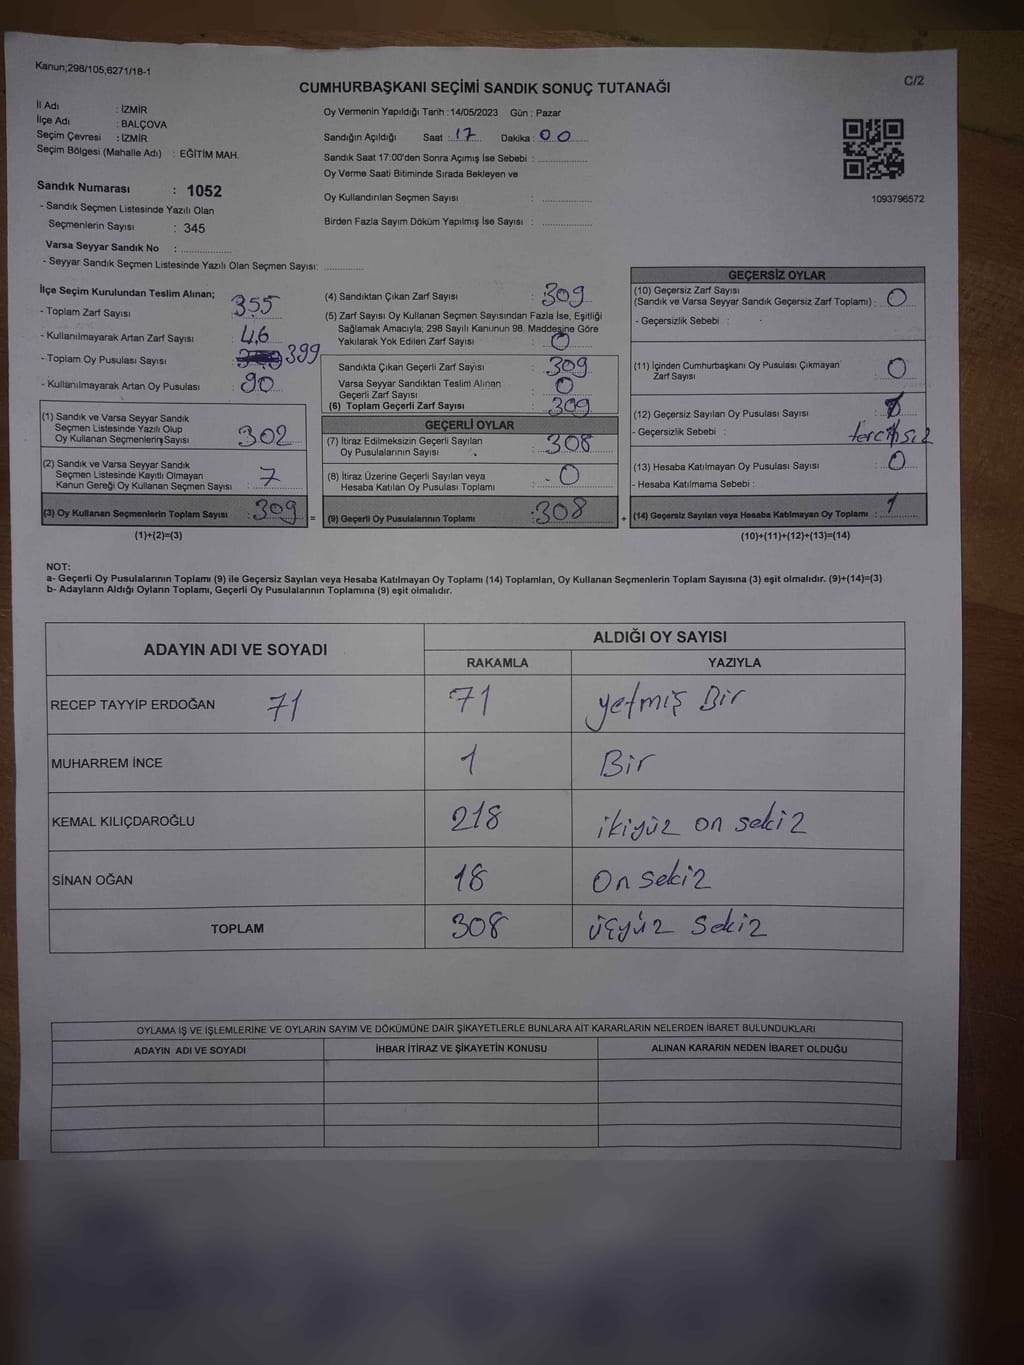 Kanun;298/105,6271/18-1
C/2
CUMHURBAŞKANI SEÇİMİ SANDIK SONUÇ TUTANAĞI
İl Adı : İZMİR
İlçe Adı : BALÇOVA
Seçim Çevresi : İZMİR
Seçim Bölgesi (Mahalle Adı) : EĞİTİM MAH.
Sandık Numarası : 1052
- Sandık Seçmen Listesinde Yazılı Olan
Seçmenlerin Sayısı : 345
Varsa Seyyar Sandık No :
- Seyyar Sandık Seçmen Listesinde Yazılı Olan Seçmen Sayısı:
Oy Vermenin Yapıldığı Tarih : 14/05/2023 Gün : Pazar
Sandığın Açıldığı Saat : 17 Dakika : 00
Sandık Saat 17:00'den Sonra Açımış İse Sebebi :
Oy Verme Saati Bitiminde Sırada Bekleyen ve
Oy Kullandırılan Seçmen Sayısı :
Birden Fazla Sayım Döküm Yapılmış İse Sayısı :
1093796572
İlçe Seçim Kurulundan Teslim Alınan;
- Toplam Zarf Sayısı : 355
- Kullanılmayarak Artan Zarf Sayısı : 46
- Toplam Oy Pusulası Sayısı : 399
- Kullanılmayarak Artan Oy Pusulası : 90
(1) Sandık ve Varsa Seyyar Sandık
Seçmen Listesinde Yazılı Olup
Oy Kullanan Seçmenlerin Sayısı : 302
(2) Sandık ve Varsa Seyyar Sandık
Seçmen Listesinde Kayıtlı Olmayan
Kanun Gereği Oy Kullanan Seçmen Sayısı : 7
(3) Oy Kullanan Seçmenlerin Toplam Sayısı : 309 =
(1)+(2)=(3)
(4) Sandıktan Çıkan Zarf Sayısı : 309
(5) Zarf Sayısı Oy Kullanan Seçmen Sayısından Fazla İse, Eşitliği
Sağlamak Amacıyla; 298 Sayılı Kanunun 98. Maddesine Göre
Yakılarak Yok Edilen Zarf Sayısı : 0
Sandıkta Çıkan Geçerli Zarf Sayısı : 309
Varsa Seyyar Sandıktan Teslim Alınan
Geçerli Zarf Sayısı : 0
(6) Toplam Geçerli Zarf Sayısı : 309
GEÇERLİ OYLAR
(7) İtiraz Edilmeksizin Geçerli Sayılan
Oy Pusulalarının Sayısı : 308
(8) İtiraz Üzerine Geçerli Sayılan veya
Hesaba Katılan Oy Pusulası Toplamı : 0
(9) Geçerli Oy Pusulalarının Toplamı : 308 +
GEÇERSİZ OYLAR
(10) Geçersiz Zarf Sayısı
(Sandık ve Varsa Seyyar Sandık Geçersiz Zarf Toplamı) : 0
- Geçersizlik Sebebi :
(11) İçinden Cumhurbaşkanı Oy Pusulası Çıkmayan
Zarf Sayısı : 0
(12) Geçersiz Sayılan Oy Pusulası Sayısı : 1
- Geçersizlik Sebebi : tercihsiz
(13) Hesaba Katılmayan Oy Pusulası Sayısı : 0
- Hesaba Katılmama Sebebi :
(14) Geçersiz Sayılan veya Hesaba Katılmayan Oy Toplamı : 1
(10)+(11)+(12)+(13)=(14)
NOT:
a- Geçerli Oy Pusulalarının Toplamı (9) ile Geçersiz Sayılan veya Hesaba Katılmayan Oy Toplamı (14) Toplamları, Oy Kullanan Seçmenlerin Toplam Sayısına (3) eşit olmalıdır. (9)+(14)=(3)
b- Adayların Aldığı Oyların Toplamı, Geçerli Oy Pusulalarının Toplamına (9) eşit olmalıdır.
ADAYIN ADI VE SOYADI ALDIĞI OY SAYISI
RAKAMLA YAZIYLA
RECEP TAYYİP ERDOĞAN 71 71 yetmiş Bir
MUHARREM İNCE 1 Bir
KEMAL KILIÇDAROĞLU 218 ikiyüz on sekiz
SİNAN OĞAN 18 On sekiz
TOPLAM 308 üçyüz sekiz
OYLAMA İŞ VE İŞLEMLERİNE VE OYLARIN SAYIM VE DÖKÜMÜNE DAİR ŞİKAYETLERLE BUNLARA AİT KARARLARIN NELERDEN İBARET BULUNDUKLARI
ADAYIN ADI VE SOYADI İHBAR İTİRAZ VE ŞİKAYETİN KONUSU ALINAN KARARIN NEDEN İBARET OLDUĞU